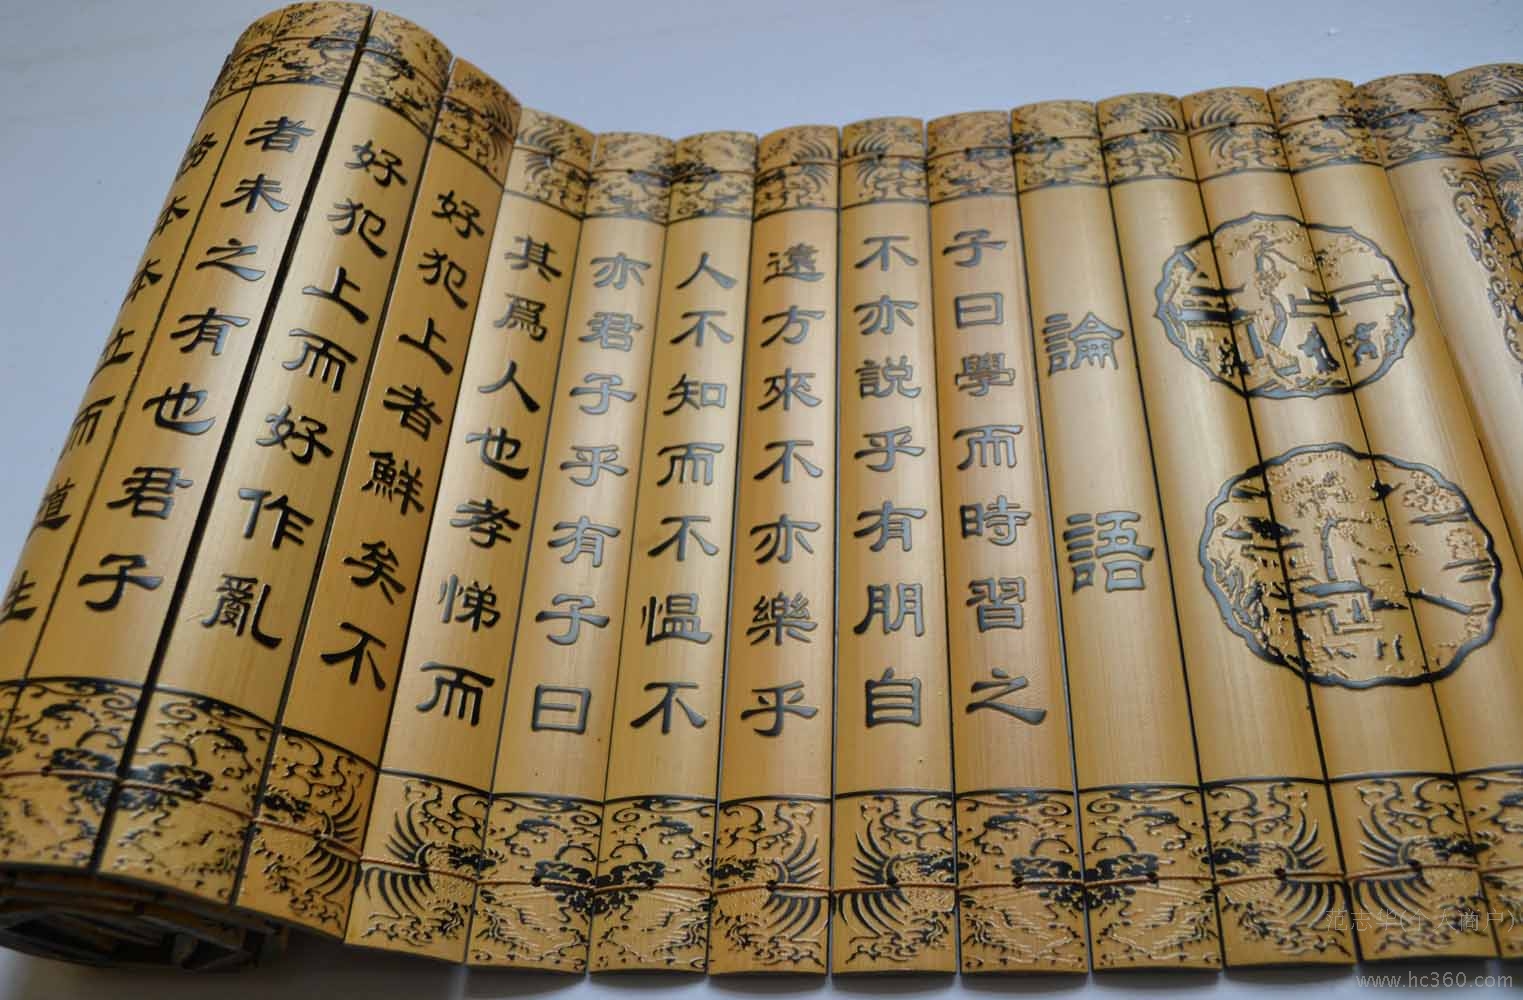 論語
子曰學而時習之
不亦説乎有朋自
遠方來不亦樂乎
人不知而不愠不
亦君子乎有子曰
其爲人也孝悌而
好犯上者鮮矣不
好犯上而好作亂
者未之有也君子
務本本立而道生
范志华(个人商户)
www.hc360.com